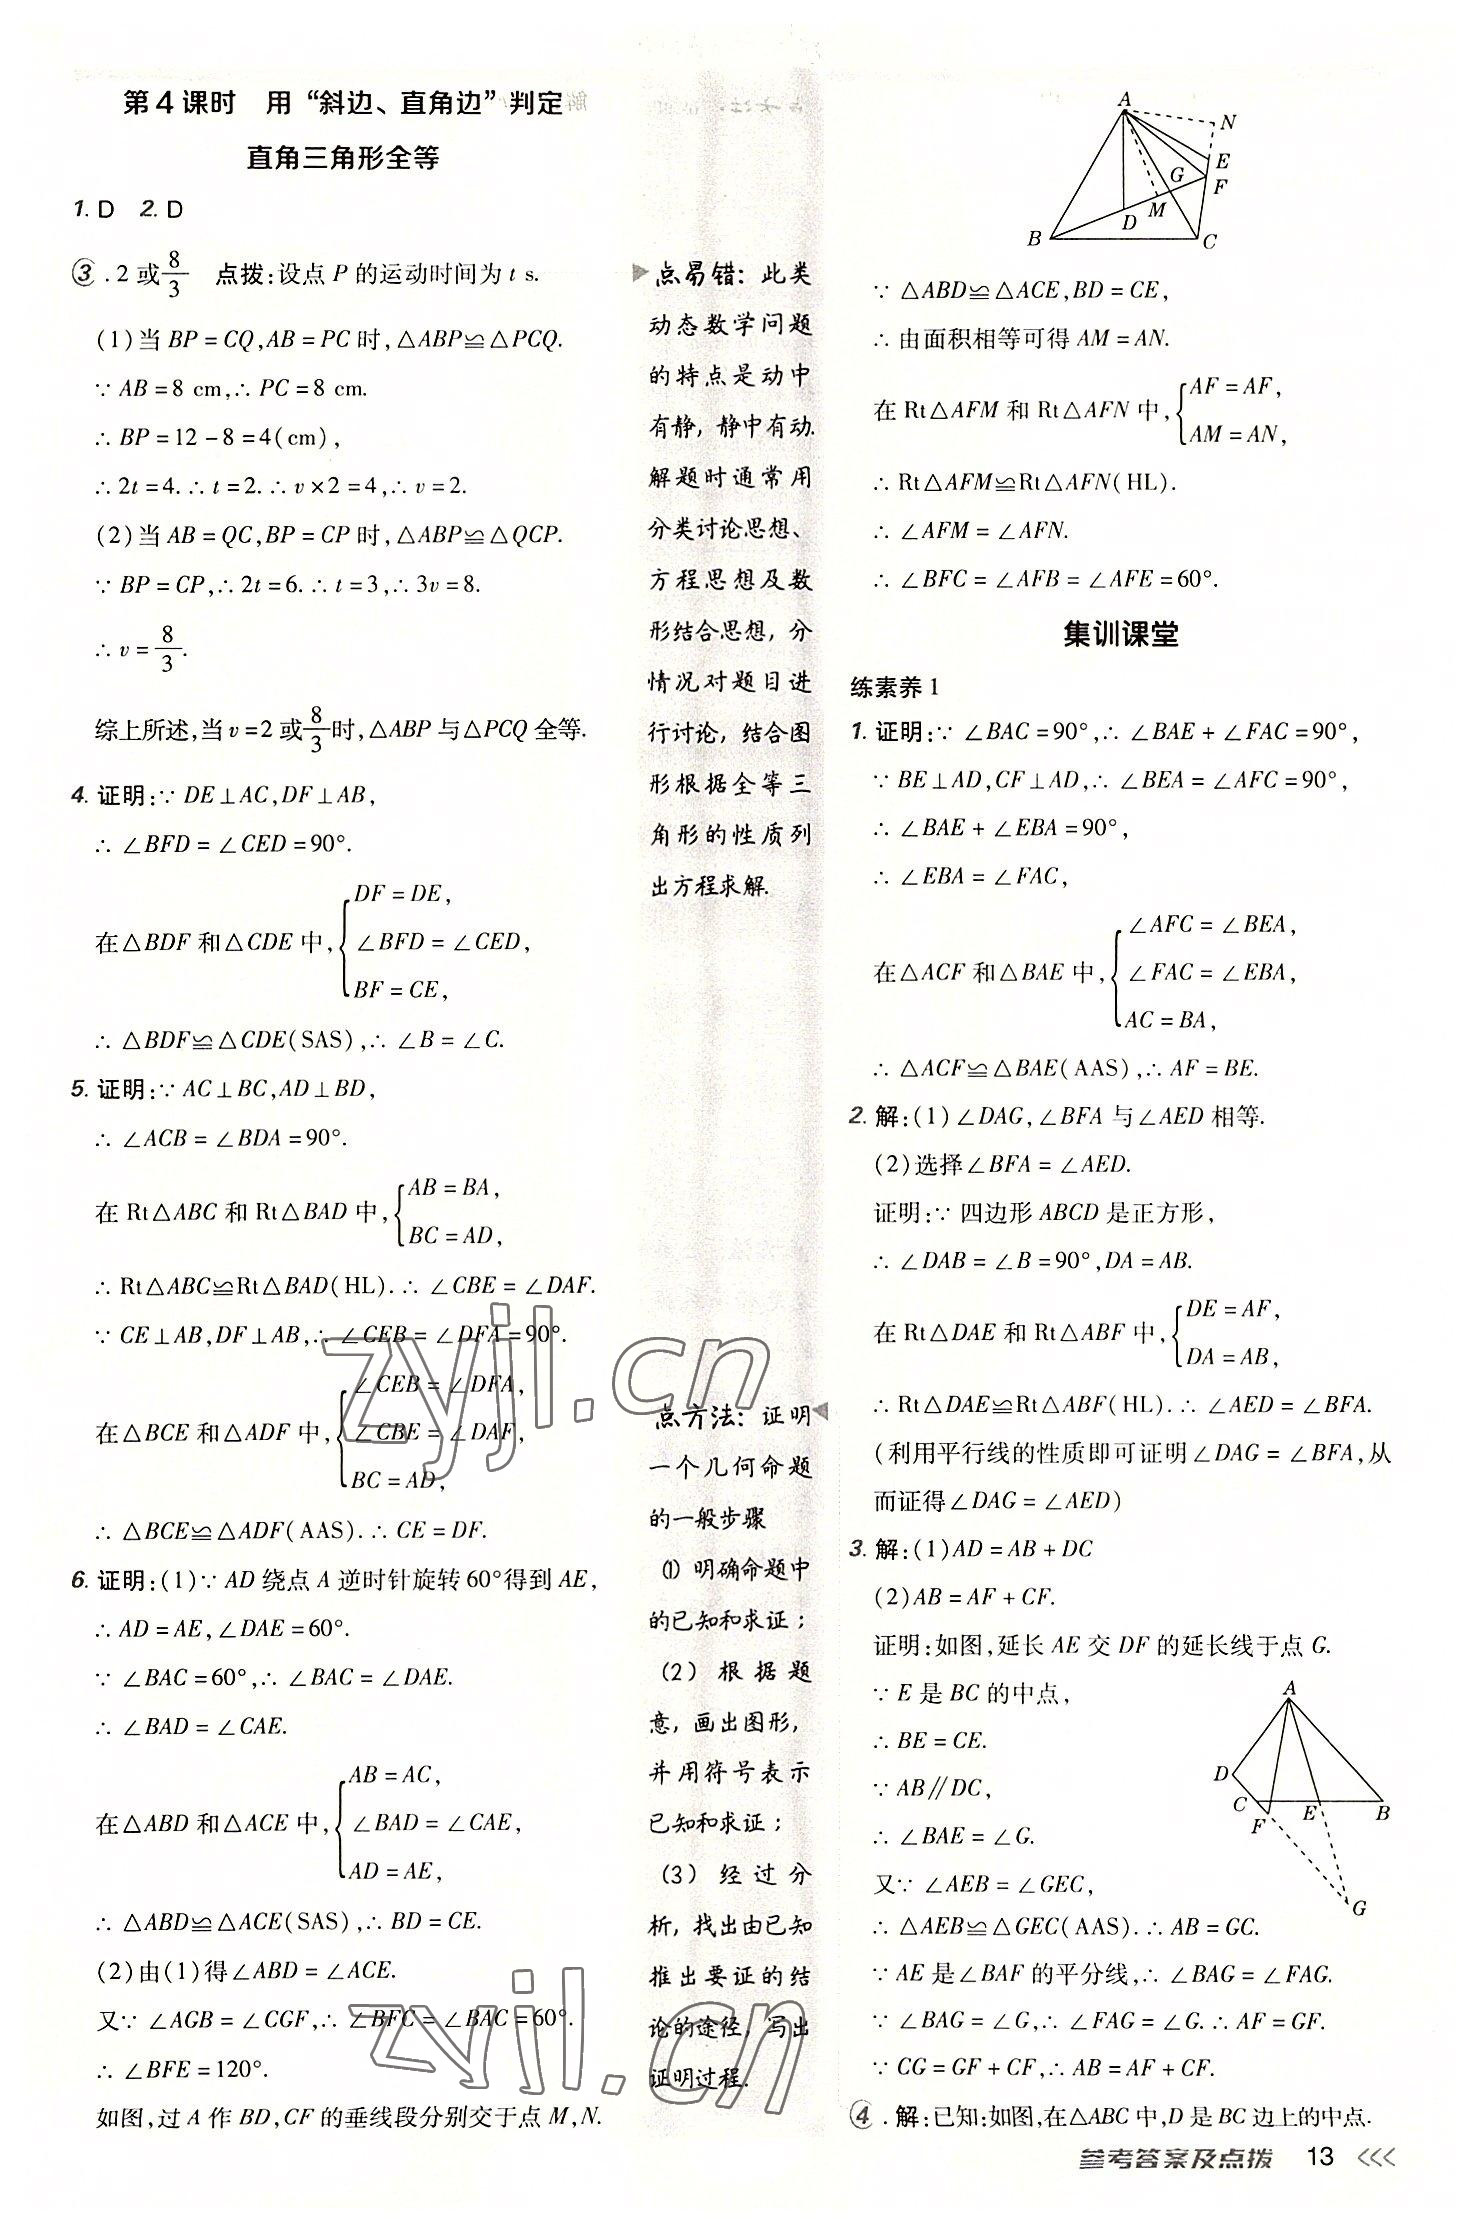 第4课时 用“斜边、直角边”判定
直角三角形全等
1. D 2. D
③. 2或8/3 点拨:设点P的运动时间为t s.
(1)当BP=CQ,AB=PC时,△ABP≌△PCQ.
∵AB=8 cm,∴PC=8 cm.
∴BP=12-8=4(cm),
∴2t=4.∴t=2.∴v×2=4,∴v=2.
(2)当AB=QC,BP=CP时,△ABP≌△QCP.
∵BP=CP,∴2t=6.∴t=3,∴3v=8.
∴v=8/3.
综上所述,当v=2或8/3时,△ABP与△PCQ全等.
4. 证明:∵DE⊥AC,DF⊥AB,
∴∠BFD=∠CED=90°.
DF=DE,
在△BDF和△CDE中,{∠BFD=∠CED,
BF=CE,
∴△BDF≌△CDE(SAS),∴∠B=∠C.
5. 证明:∵AC⊥BC,AD⊥BD,
∴∠ACB=∠BDA=90°.
在Rt△ABC和Rt△BAD中,{AB=BA,
BC=AD,
∴Rt△ABC≌Rt△BAD(HL).∴∠CBE=∠DAF.
∵CE⊥AB,DF⊥AB,∴∠CEB=∠DFA=90°.
∠CEB=∠DFA,
在△BCE和△ADF中,{∠CBE=∠DAF,
BC=AD,
∴△BCE≌△ADF(AAS).∴CE=DF.
6. 证明:(1)∵AD绕点A逆时针旋转60°得到AE,
∴AD=AE,∠DAE=60°.
∵∠BAC=60°,∴∠BAC=∠DAE.
∴∠BAD=∠CAE.
AB=AC,
在△ABD和△ACE中,{∠BAD=∠CAE,
AD=AE,
∴△ABD≌△ACE(SAS),∴BD=CE.
(2)由(1)得∠ABD=∠ACE.
又∵∠AGB=∠CGF,∴∠BFC=∠BAC=60°.
∴∠BFE=120°.
如图,过A作BD,CF的垂线段分别交于点M,N.
点易错:此类
动态数学问题
的特点是动中
有静,静中有动.
解题时通常用
分类讨论思想、
方程思想及数
形结合思想,分
情况对题目进
行讨论,结合图
形根据全等三
角形的性质列
出方程求解.
点方法:证明
一个几何命题
的一般步骤
(1)明确命题中
的已知和求证;
(2)根据题
意,画出图形,
并用符号表示
已知和求证;
(3)经过分
析,找出由已知
推出要证的结
论的途径,写出
证明过程.
A
N
E
G
F
M
D
B
C
∵△ABD≌△ACE,BD=CE,
∴由面积相等可得AM=AN.
在Rt△AFM和Rt△AFN中,{AF=AF,
AM=AN,
∴Rt△AFM≌Rt△AFN(HL).
∴∠AFM=∠AFN.
∴∠BFC=∠AFB=∠AFE=60°.
集训课堂
练素养1
1. 证明:∵∠BAC=90°,∴∠BAE+∠FAC=90°,
∵BE⊥AD,CF⊥AD,∴∠BEA=∠AFC=90°,
∴∠BAE+∠EBA=90°,
∴∠EBA=∠FAC,
∠AFC=∠BEA,
在△ACF和△BAE中,{∠FAC=∠EBA,
AC=BA,
∴△ACF≌△BAE(AAS),∴AF=BE.
2. 解:(1)∠DAG,∠BFA与∠AED相等.
(2)选择∠BFA=∠AED.
证明:∵四边形ABCD是正方形,
∴∠DAB=∠B=90°,DA=AB.
在Rt△DAE和Rt△ABF中,{DE=AF,
DA=AB,
∴Rt△DAE≌Rt△ABF(HL).∴∠AED=∠BFA.
(利用平行线的性质即可证明∠DAG=∠BFA,从
而证得∠DAG=∠AED)
3. 解:(1)AD=AB+DC
(2)AB=AF+CF.
证明:如图,延长AE交DF的延长线于点G.
∵E是BC的中点,
∴BE=CE.
∵AB∥DC,
∴∠BAE=∠G.
又∵∠AEB=∠GEC,
A
D
C
F
E
B
G
∴△AEB≌△GEC(AAS).∴AB=GC.
∵AE是∠BAF的平分线,∴∠BAG=∠FAG.
∵∠BAG=∠G,∴∠FAG=∠G.∴AF=GF.
∵CG=GF+CF,∴AB=AF+CF.
④. 解:已知:如图,在△ABC中,D是BC边上的中点.
参考答案及点拨 13
zyjl.cn
zyjl.cn